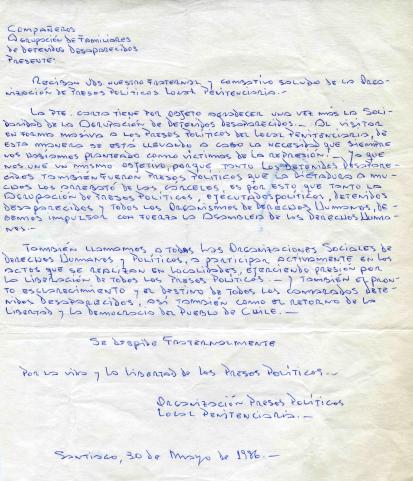 Compañeros
Agrupación de Familiares
de Detenidos Desaparecidos
Presente.
Reciban Uds. nuestro fraternal y combativo saludo de la Orga-
nización de Presos Políticos Local Penitenciaria.-
La pte. carta tiene por objeto agradecer una vez mas la Soli-
daridad de la Agrupación de Detenidos Desaparecidos.- Al visitar
en forma masiva a los Presos Políticos del Local Penitenciaria, de
esta manera se está llevando a cabo la necesidad que siempre
nos habiamos planteado como victimas de la represión.- Ya que
nos une un mismo objetivo, porque tanto los Detenidos Desapare-
cidos también fueron Presos Políticos que la Dictadura a mu-
chos los arrebató de las carceles, es por esto que tanto la
Agrupación de Presos Políticos, Ejecutados Políticos, Detenidos
Desaparecidos y todos los Organismos de Derechos Humanos, de-
bemos impulsar con fuerza la Asamblea de los Derechos Huma-
nos.-
También llamamos, a todas las Organizaciones Sociales de
Derechos Humanos y Políticos, a participar activamente en los
actos que se realizan en localidades, ejerciendo presión por
la liberación de todos los Presos Políticos.- y también el pron-
to esclarecimiento y el destino de todos los camaradas dete-
nidos desaparecidos, así también como el retorno de la
Libertad y la Democracia del Pueblo de Chile.-
Se despide Fraternalmente
Por la vida y la libertad de los Presos Políticos.-
Organización Presos Políticos
Local Penitenciaria.-
Santiago, 30 de Mayo de 1986.-